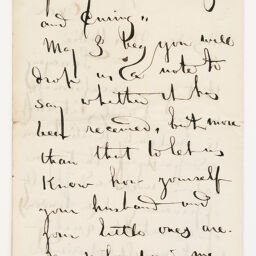 and
May I beg you will
drop us a note to
say whether it has
been received, but more
than that to let us
Know how yourself
your husband and
four little ones are.